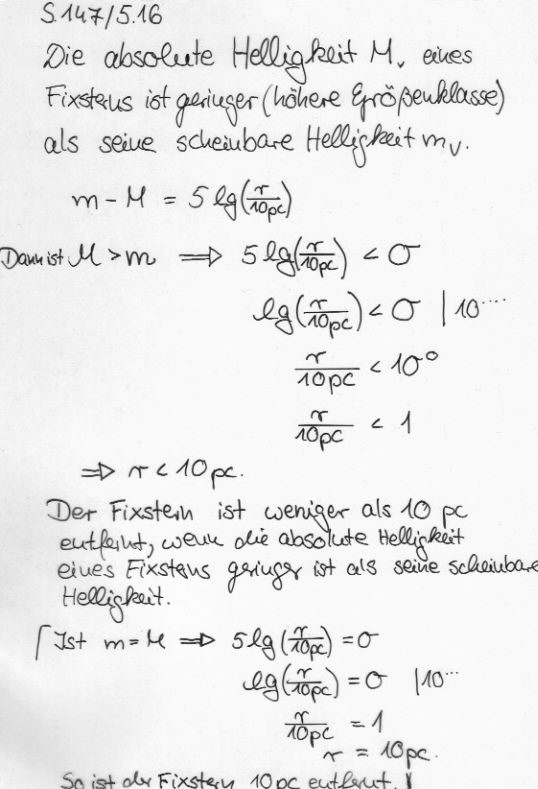 S.147/5.16
Die absolute Helligkeit M_v eines
Fixsterns ist geringer (höhere Größenklasse)
als seine scheinbare Helligkeit m_v.
m - M = 5 lg(r/10pc)
Dann ist M > m ⟹ 5 lg(r/10pc) < 0
lg(r/10pc) < 0 | 10^....
r/10pc < 10^0
r/10pc < 1
⟹ r < 10 pc.
Der Fixstern ist weniger als 10 pc
entfernt, wenn die absolute Helligkeit
eines Fixsterns geringer ist als seine scheinbare
Helligkeit.
⌈Ist m = M ⟹ 5 lg(r/10pc) = 0
lg(r/10pc) = 0 | 10^...
r/10pc = 1
r = 10pc.
So ist der Fixstern 10 pc entfernt.